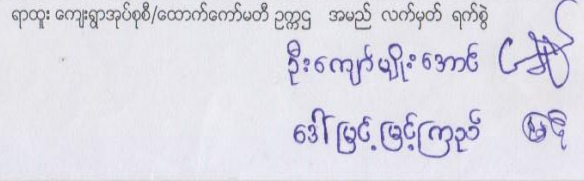 ရာထူး ကျေးရွာအုပ်စုစီ/ထောက်ကော်မတီ ဥက္ကဌ အမည် လက်မှတ် ရက်စွဲ
ဦးကျော်မျိုးအောင်
ဒေါ်မြင့်မြင့်ကြည်